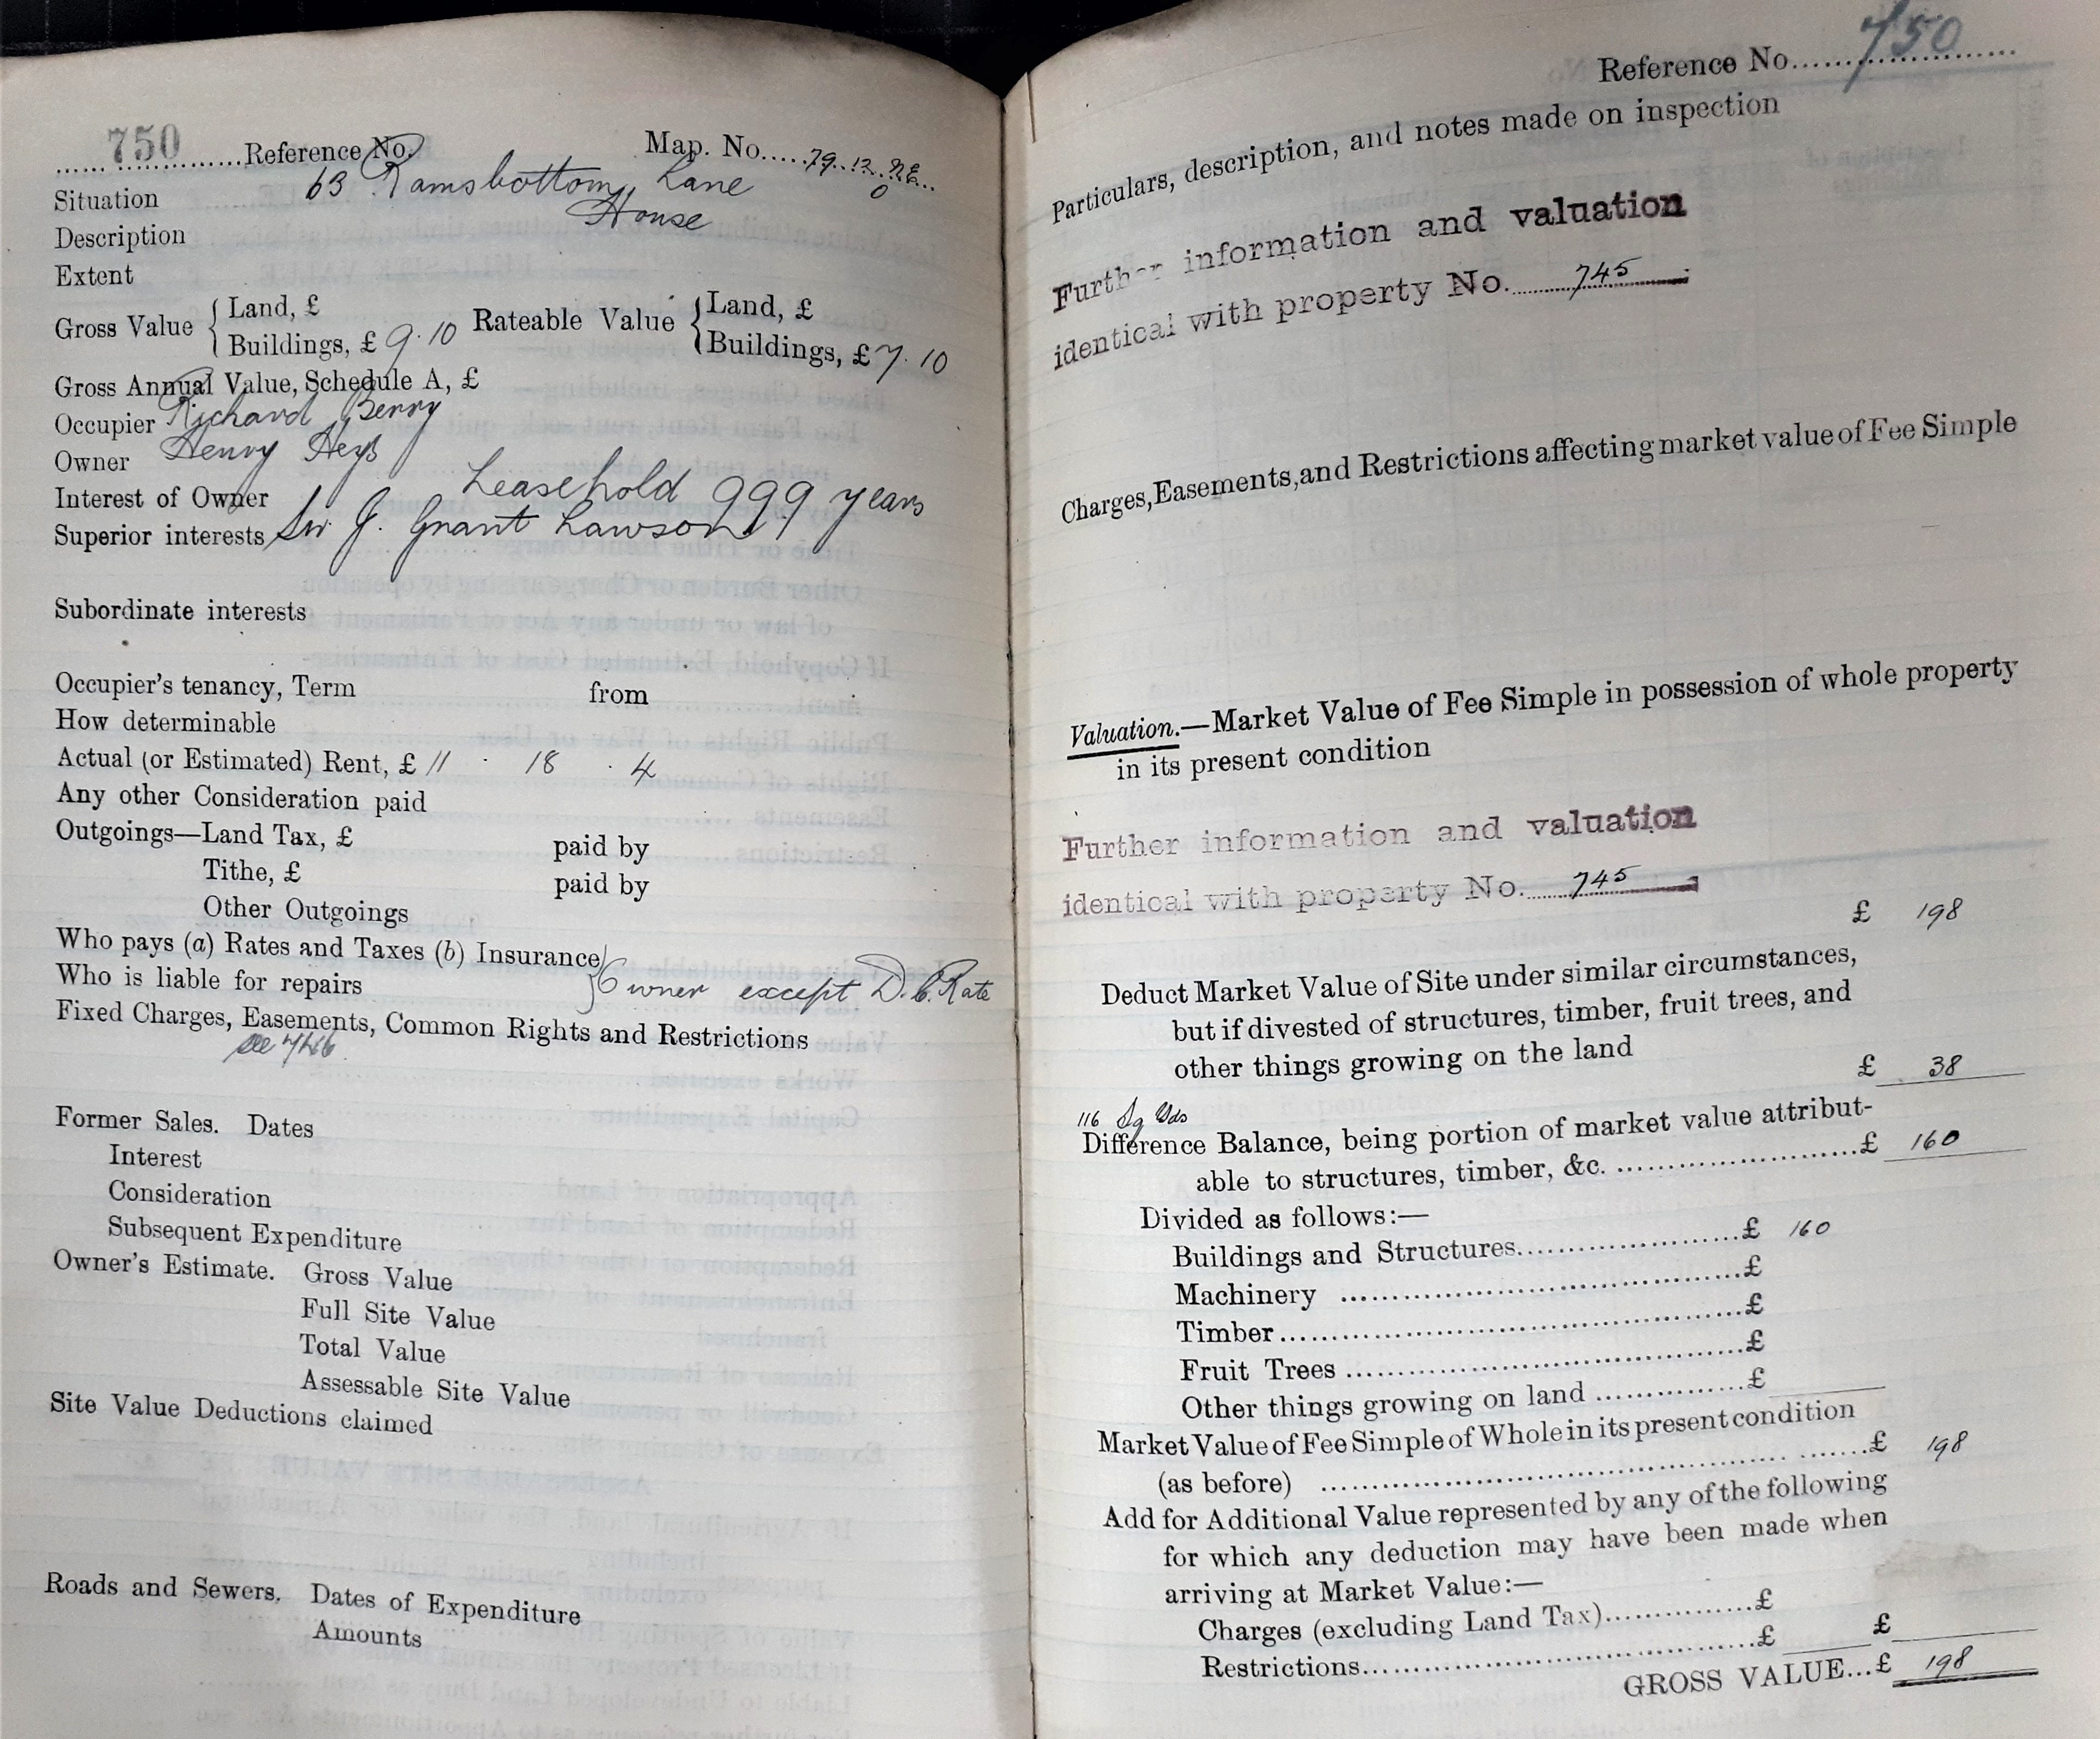 750 Reference No. Map. No. 79.12.N.E.
Situation 63 Ramsbottom, Lane 0
Description House
Extent
Gross Value { Land, £ Rateable Value { Land, £
Buildings, £ 9.10 Buildings, £ 7.10
Gross Annual Value, Schedule A, £
Occupier Richard Berry
Owner Henry Heys
Interest of Owner Leasehold 999 years
Superior interests Sir J. Grant Lawson
Subordinate interests
Occupier's tenancy, Term from
How determinable
Actual (or Estimated) Rent, £ 11 . 18 . 4
Any other Consideration paid
Outgoings—Land Tax, £ paid by
Tithe, £ paid by
Other Outgoings
Who pays (a) Rates and Taxes (b) Insurance
Who is liable for repairs } Owner except D.C. Rate
Fixed Charges, Easements, Common Rights and Restrictions
see
Former Sales. Dates
Interest
Consideration
Subsequent Expenditure
Owner's Estimate. Gross Value
Full Site Value
Total Value
Assessable Site Value
Site Value Deductions claimed
Roads and Sewers. Dates of Expenditure
Amounts
Reference No. 750
Particulars, description, and notes made on inspection
Further information and valuation
identical with property No. 745
Charges, Easements, and Restrictions affecting market value of Fee Simple
Valuation.—Market Value of Fee Simple in possession of whole property
in its present condition
Further information and valuation
identical with property No. 745
£ 198
Deduct Market Value of Site under similar circumstances,
but if divested of structures, timber, fruit trees, and
other things growing on the land
£ 38
116 Sq Yds
Difference Balance, being portion of market value attribut-
able to structures, timber, &c. £ 160
Divided as follows:—
Buildings and Structures £ 160
Machinery £
Timber £
Fruit Trees £
Other things growing on land £
Market Value of Fee Simple of Whole in its present condition
(as before) £ 198
Add for Additional Value represented by any of the following
for which any deduction may have been made when
arriving at Market Value:—
Charges (excluding Land Tax) £
Restrictions £ £
GROSS VALUE...£ 198